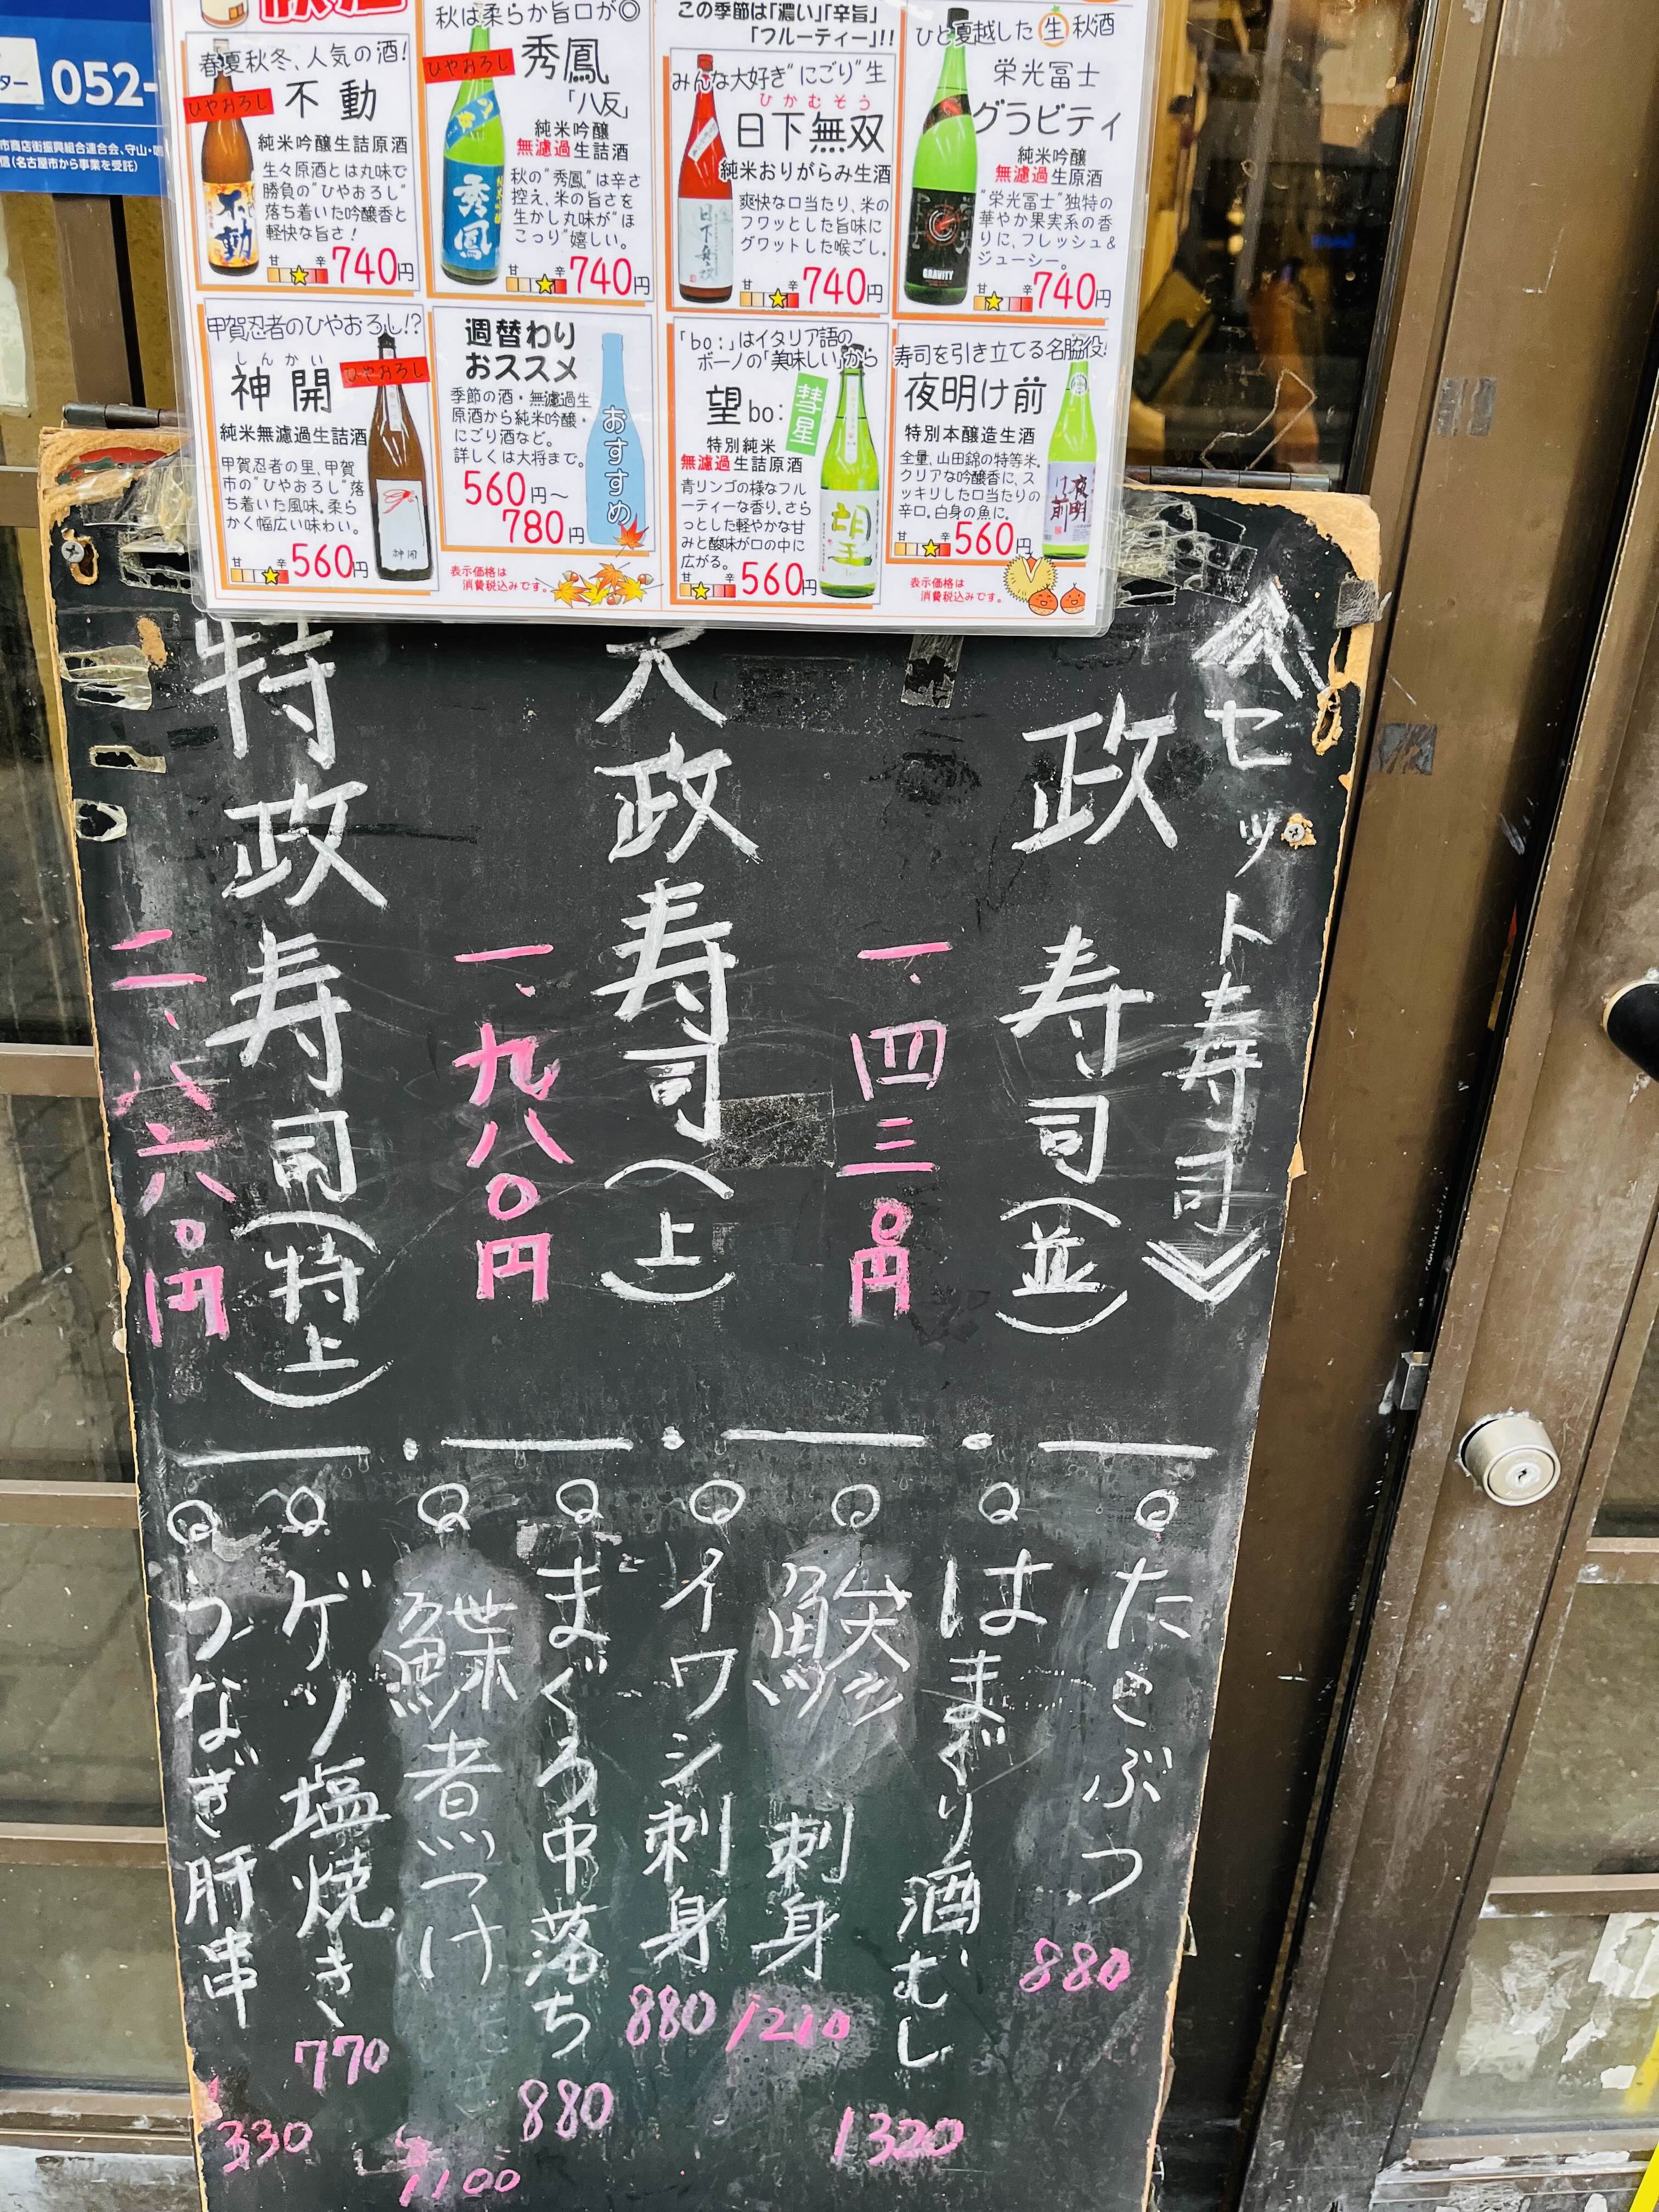 052-
ター
市商店街振興組合連合会、守山・
信(名古屋市から事業を受託)
春夏秋冬、人気の酒!
ひやおろし
不動
純米吟醸生詰原酒
生々原酒とは丸味で
勝負の"ひやおろし"
落ち着いた吟醸香と
軽快な旨さ!
不動
甘 辛 740円
秋は柔らか旨口が◎
ひやおろし
秀鳳
「八反」
純米吟醸
無濾過生詰酒
秋の"秀鳳"は辛さ
控え、米の旨さを
生かし丸味が"ほ
こっり"嬉しい。
秀鳳
甘 辛 740円
この季節は「濃い」「辛旨」
「フルーティー」!!
みんな大好き"にごり"生
ひかむそう
日下無双
純米おりがらみ生酒
爽快な口当たり、米の
フワッとした旨味に
グワットした喉ごし。
日下無双
甘 辛 740円
ひと夏越した生秋酒
栄光冨士
グラビティ
純米吟醸
無濾過生原酒
"栄光冨士"独特の
華やか果実系の香
りに、フレッシュ&
ジューシー。
GRAVITY
甘 辛 740円
甲賀忍者のひやおろし!?
しんかい
神開
ひやおろし
純米無濾過生詰酒
甲賀忍者の里、甲賀
市の"ひやおろし"落
ち着いた風味。柔ら
かく幅広い味わい。
神開
甘 辛 560円
週替わり
おススメ
季節の酒・無濾過生
原酒から純米吟醸・
にごり酒など。
詳しくは大将まで。
おすすめ
560円～
780円
表示価格は
消費税込みです。
「bo:」はイタリア語の
ボーノの「美味しい」から
望bo:
彗星
特別純米
無濾過生詰原酒
青リンゴの様なフル
ーティーな香り。さら
っとした軽やかな甘
みと酸味が口の中に
広がる。
望
甘 辛 560円
寿司を引き立てる名脇役!
夜明け前
特別本醸造生酒
全量、山田錦の特等米。
クリアな吟醸香に、ス
ッキリした口当たりの
辛口。白身の魚に。
夜明け前
甘 辛 560円
表示価格は
消費税込みです。
《セット寿司》
政寿司(並)
一、四三〇円
大政寿司(上)
一、九八〇円
特政寿司(特上)
二、八六〇円
たこぶつ
880
はまぐり酒むし
1320
鯵刺身
1210
イワシ刺身
880
まぐろ中落ち
880
鰈煮つけ
1100
ゲソ塩焼き
770
うなぎ肝串
330